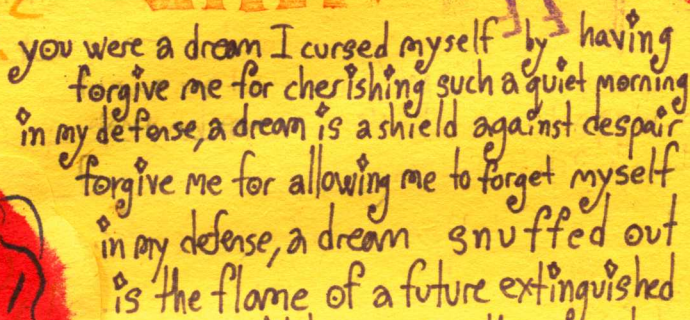 you were a dream I cursed myself by having
forgive me for cherishing such a quiet morning
in my defense, a dream is a shield against despair
forgive me for allowing me to forget myself
in my defense, a dream snuffed out
is the flame of a future extinguished